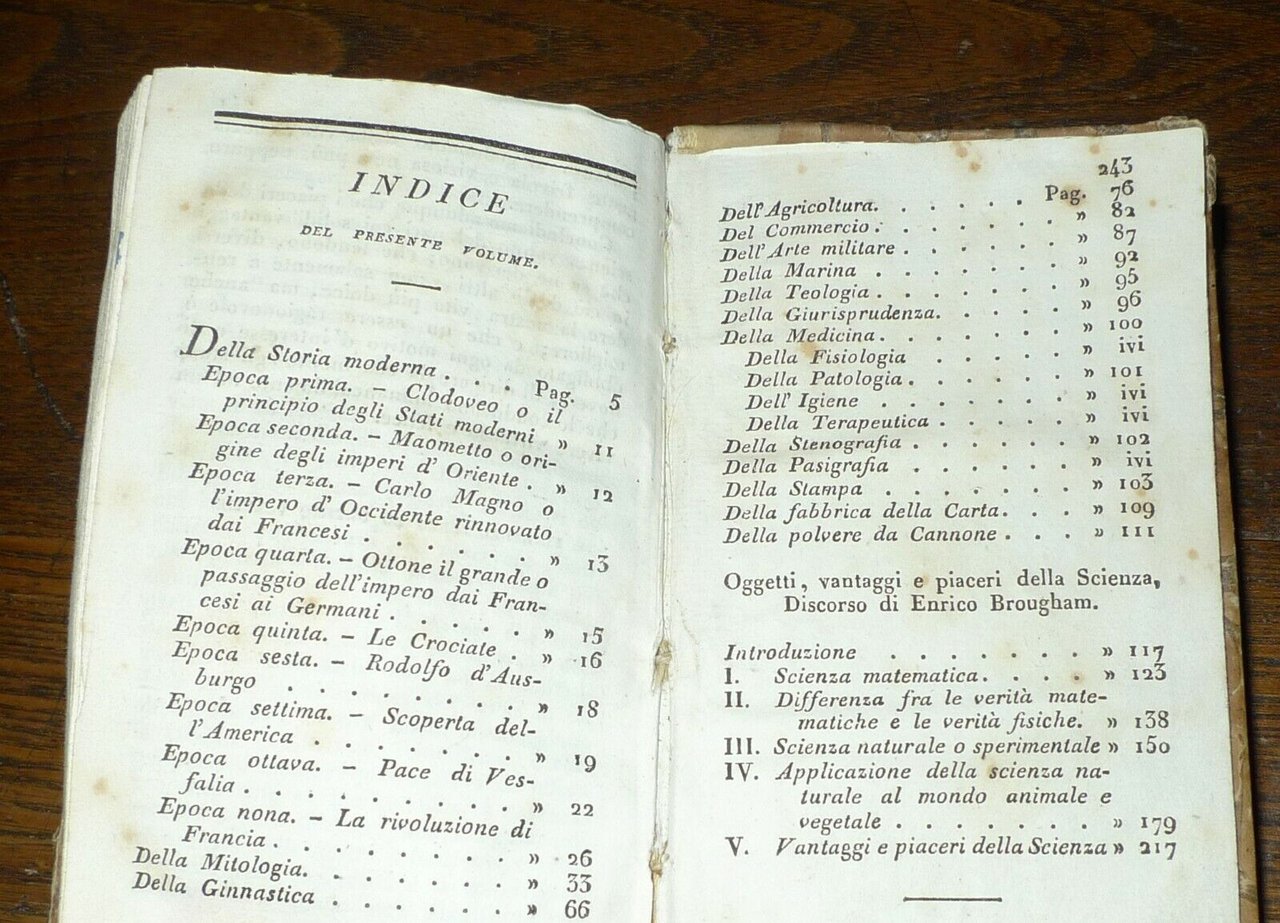 INDICE
DEL PRESENTE VOLUME.
Della Storia moderna . . . Pag. 5
Epoca prima. – Clodoveo o il
principio degli Stati moderni » 11
Epoca seconda. – Maometto o ori-
gine degli imperi d' Oriente . » 12
Epoca terza. – Carlo Magno o
l'impero d' Occidente rinnovato
dai Francesi . . . . . . . » 13
Epoca quarta. – Ottone il grande o
passaggio dell'impero dai Fran-
cesi ai Germani . . . . . . » 15
Epoca quinta. – Le Crociate . » 16
Epoca sesta. – Rodolfo d'Aus-
burgo . . . . . . . . » 18
Epoca settima. – Scoperta del-
l'America . . . . . . . » 19
Epoca ottava. – Pace di Ves-
falia . . . . . . . . . » 22
Epoca nona. – La rivoluzione di
Francia . . . . . . . . » 26
Della Mitologia. . . . . . . » 33
Della Ginnastica . . . . . . » 66
243
Dell'Agricoltura. . . . . . Pag. 76
Del Commercio . . . . . . . » 82
Dell'Arte militare . . . . . . » 87
Della Marina . . . . . . . » 92
Della Teologia . . . . . . . » 95
Della Giurisprudenza. . . . . » 96
Della Medicina. . . . . . . » 100
Della Fisiologia . . . . . » ivi
Della Patologia. . . . . . » 101
Dell' Igiene . . . . . . . » ivi
Della Terapeutica . . . . . » ivi
Della Stenografia . . . . . . » 102
Della Pasigrafia . . . . . . » ivi
Della Stampa . . . . . . . » 103
Della fabbrica della Carta. . . » 109
Della polvere da Cannone . . . » 111
Oggetti, vantaggi e piaceri della Scienza,
Discorso di Enrico Brougham.
Introduzione . . . . . . . » 117
I. Scienza matematica. . . . . » 123
II. Differenza fra le verità mate-
matiche e le verità fisiche. » 138
III. Scienza naturale o sperimentale » 150
IV. Applicazione della scienza na-
turale al mondo animale e
vegetale . . . . . . . » 179
V. Vantaggi e piaceri della Scienza » 217